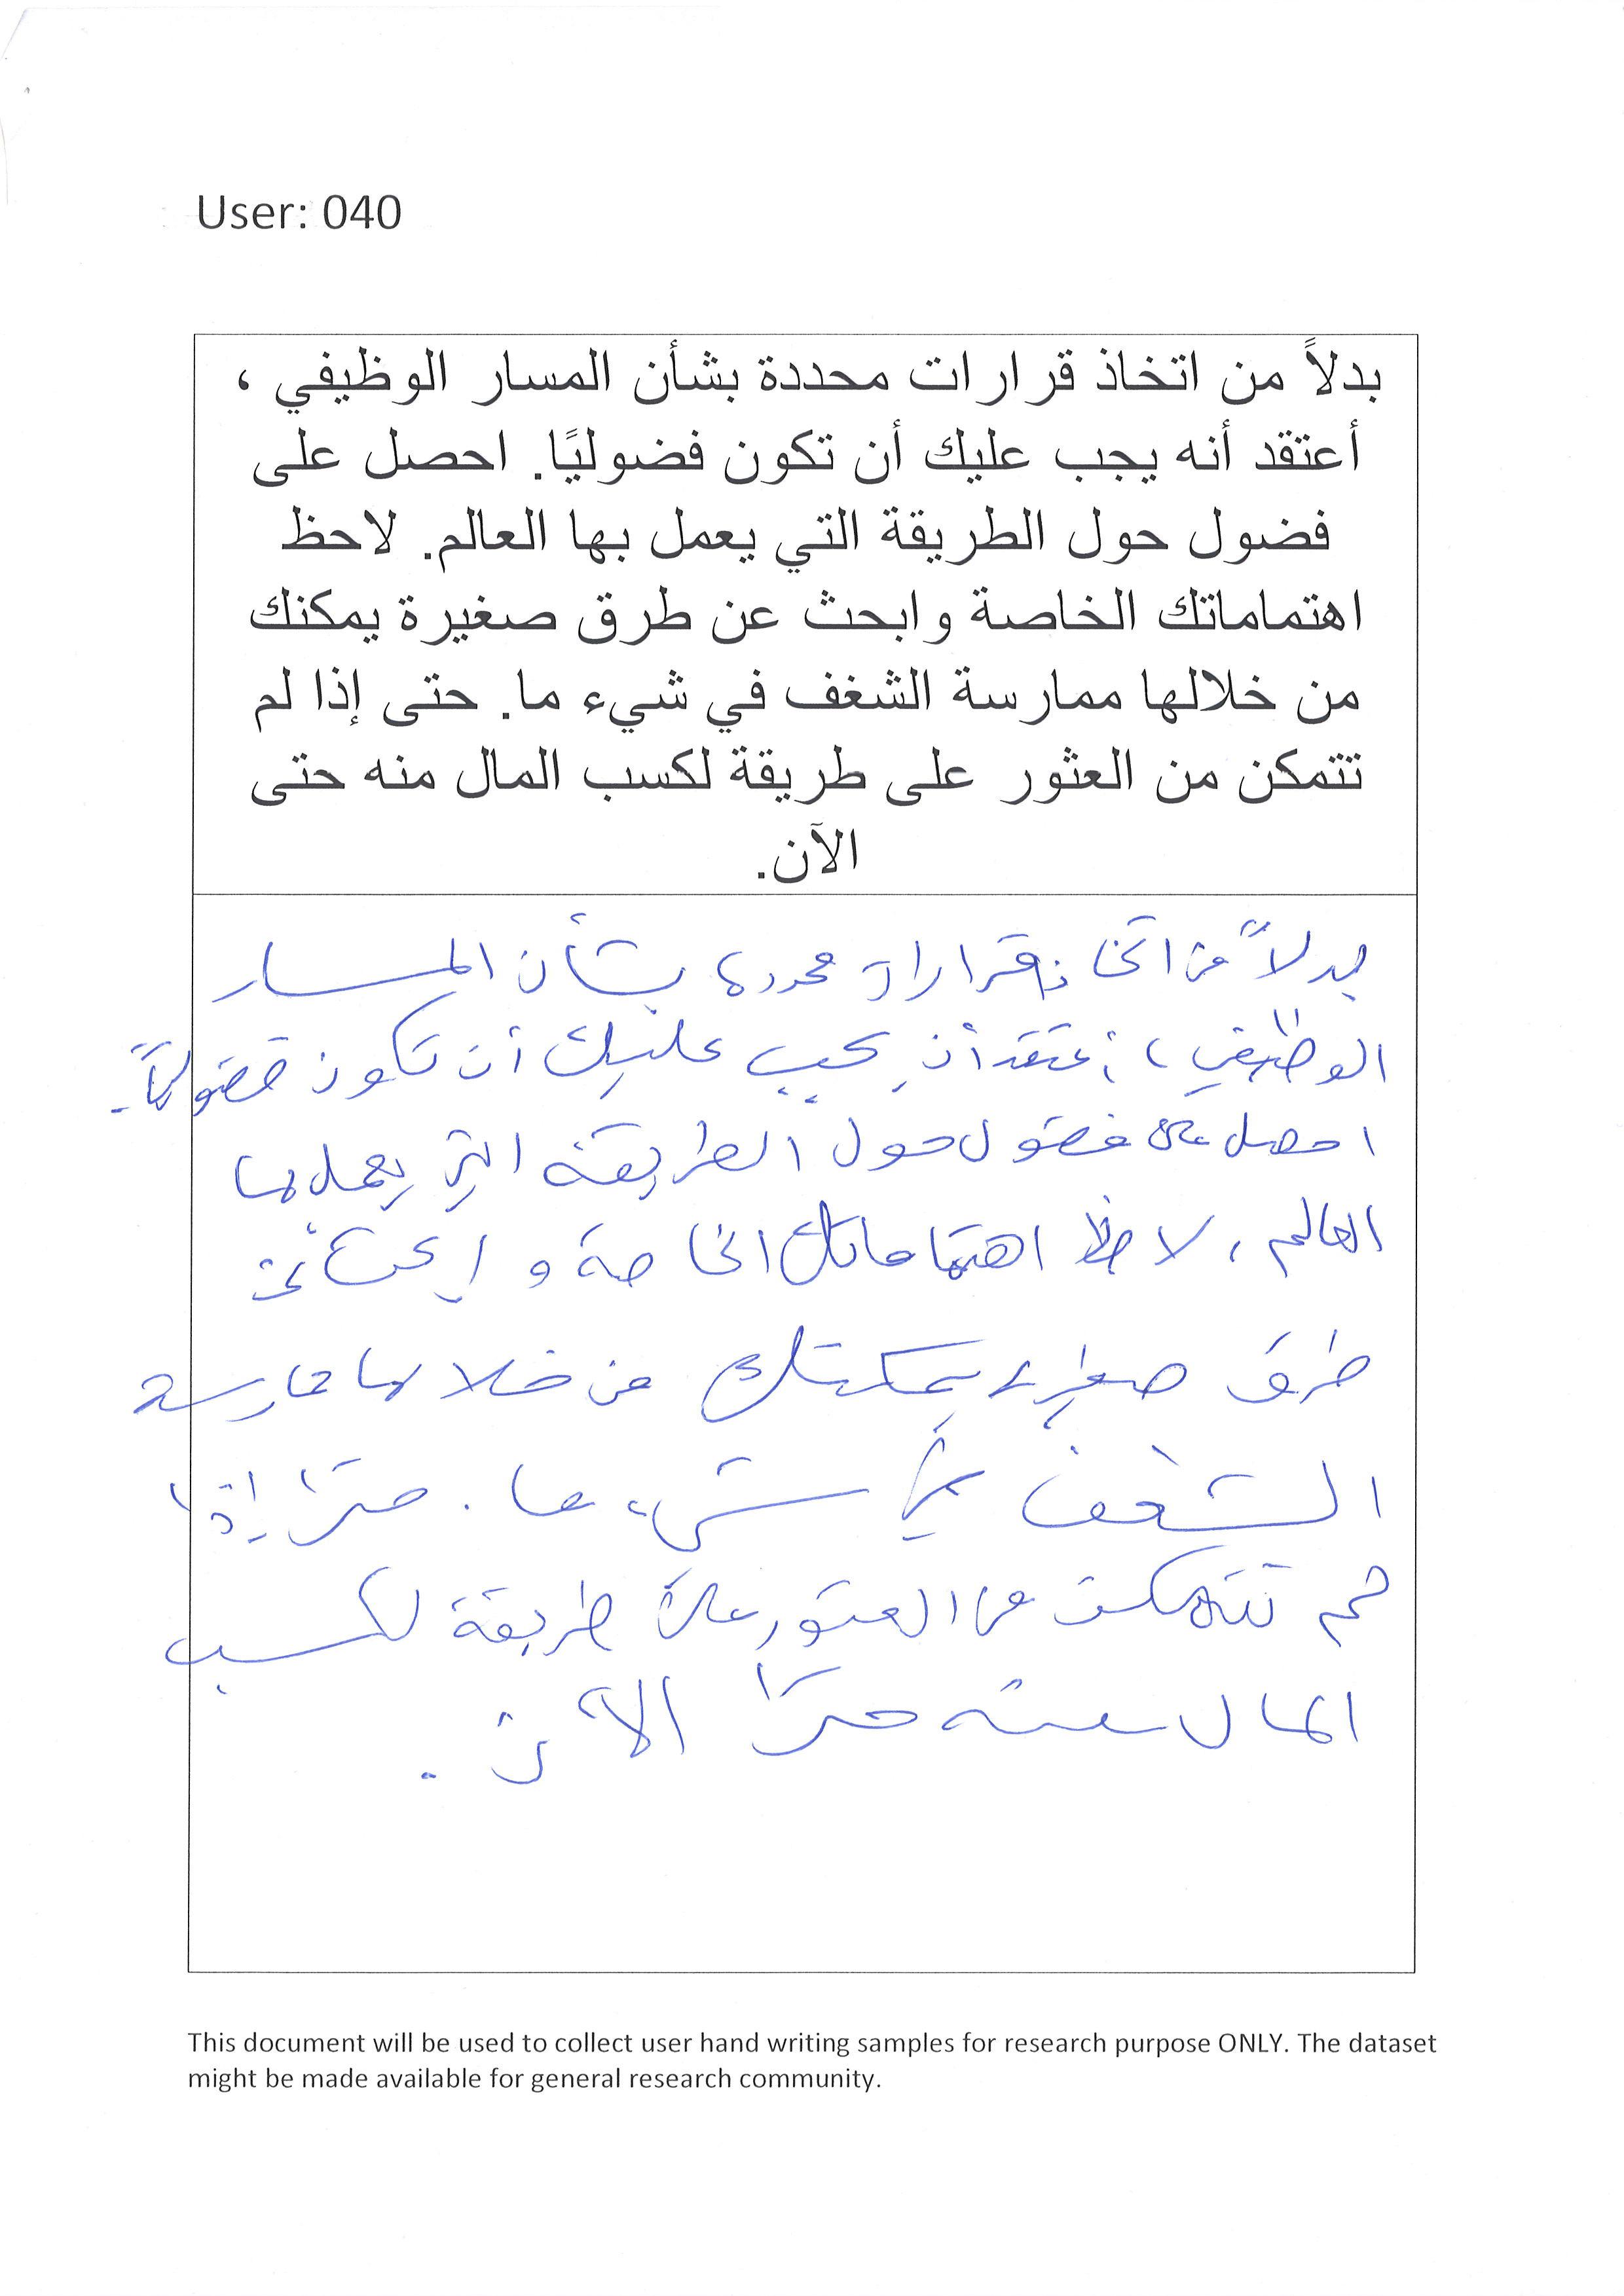 User: 040
بدلاً من اتخاذ قرارات محددة بشأن المسار الوظيفي ،
أعتقد أنه يجب عليك أن تكون فضوليًا. احصل على
فضول حول الطريقة التي يعمل بها العالم. لاحظ
اهتماماتك الخاصة وابحث عن طرق صغيرة يمكنك
من خلالها ممارسة الشغف في شيء ما. حتى إذا لم
تتمكن من العثور على طريقة لكسب المال منه حتى
الآن.
بدلاً من اتخاذ قرارات محددة بشأن المسار
الوظيفي ، أعتقد أنه يجب عليك أن تكون فضوليًا.
احصل على فضول حول الطريقة التي يعمل بها
العالم. لاحظ اهتماماتك الخاصة وابحث عن
طرق صغيرة يمكنك من خلالها ممارسة
الشغف في شيء ما. حتى إذا
لم تتمكن من العثور على طريقة لكسب
المال منه حتى الآن.
This document will be used to collect user hand writing samples for research purpose ONLY. The dataset
might be made available for general research community.